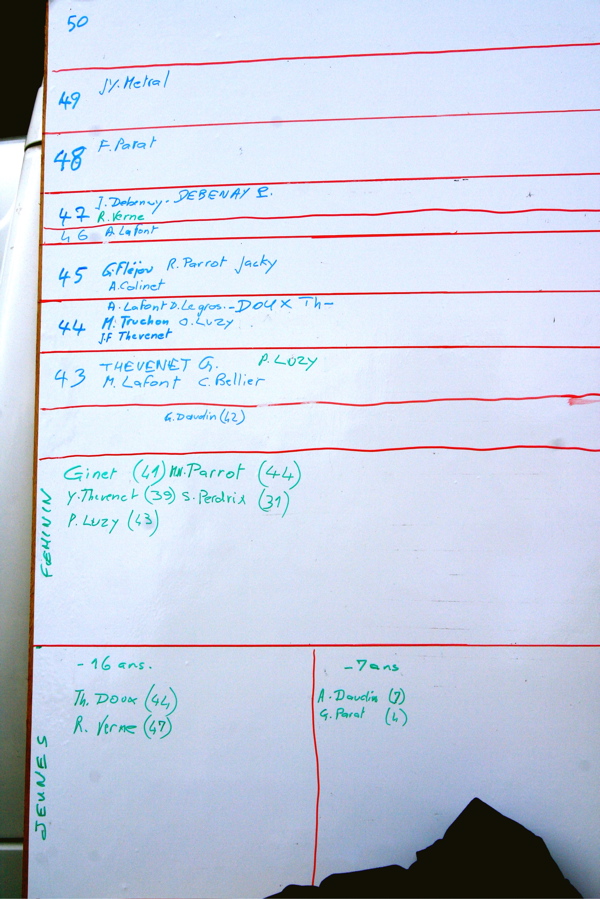 50
49 JY. Metral
48 F. Parat
47 J. Debenay - DEBENAY P.
R. Verne
46 A. Lafont
45 G. Fléjou R. Parrot Jacky
A. Colinet
A. Lafont D. Legros - DOUX Th -
44 M. Truchon O. LUZY
J.F Thevenet
43 THEVENET G. P. LUZY
M. Lafont C. Bellier
G. Daudin (42)
FEMININ
Ginet (41) MM. Parrot (44)
Y. Thevenet (39) S. Perdrix (31)
P. LUZY (43)
JEUNES
- 16 ans.
Th. DOUX (44)
R. Verne (47)
- 7 ans
A. Daudin (7)
G. Parat (4)